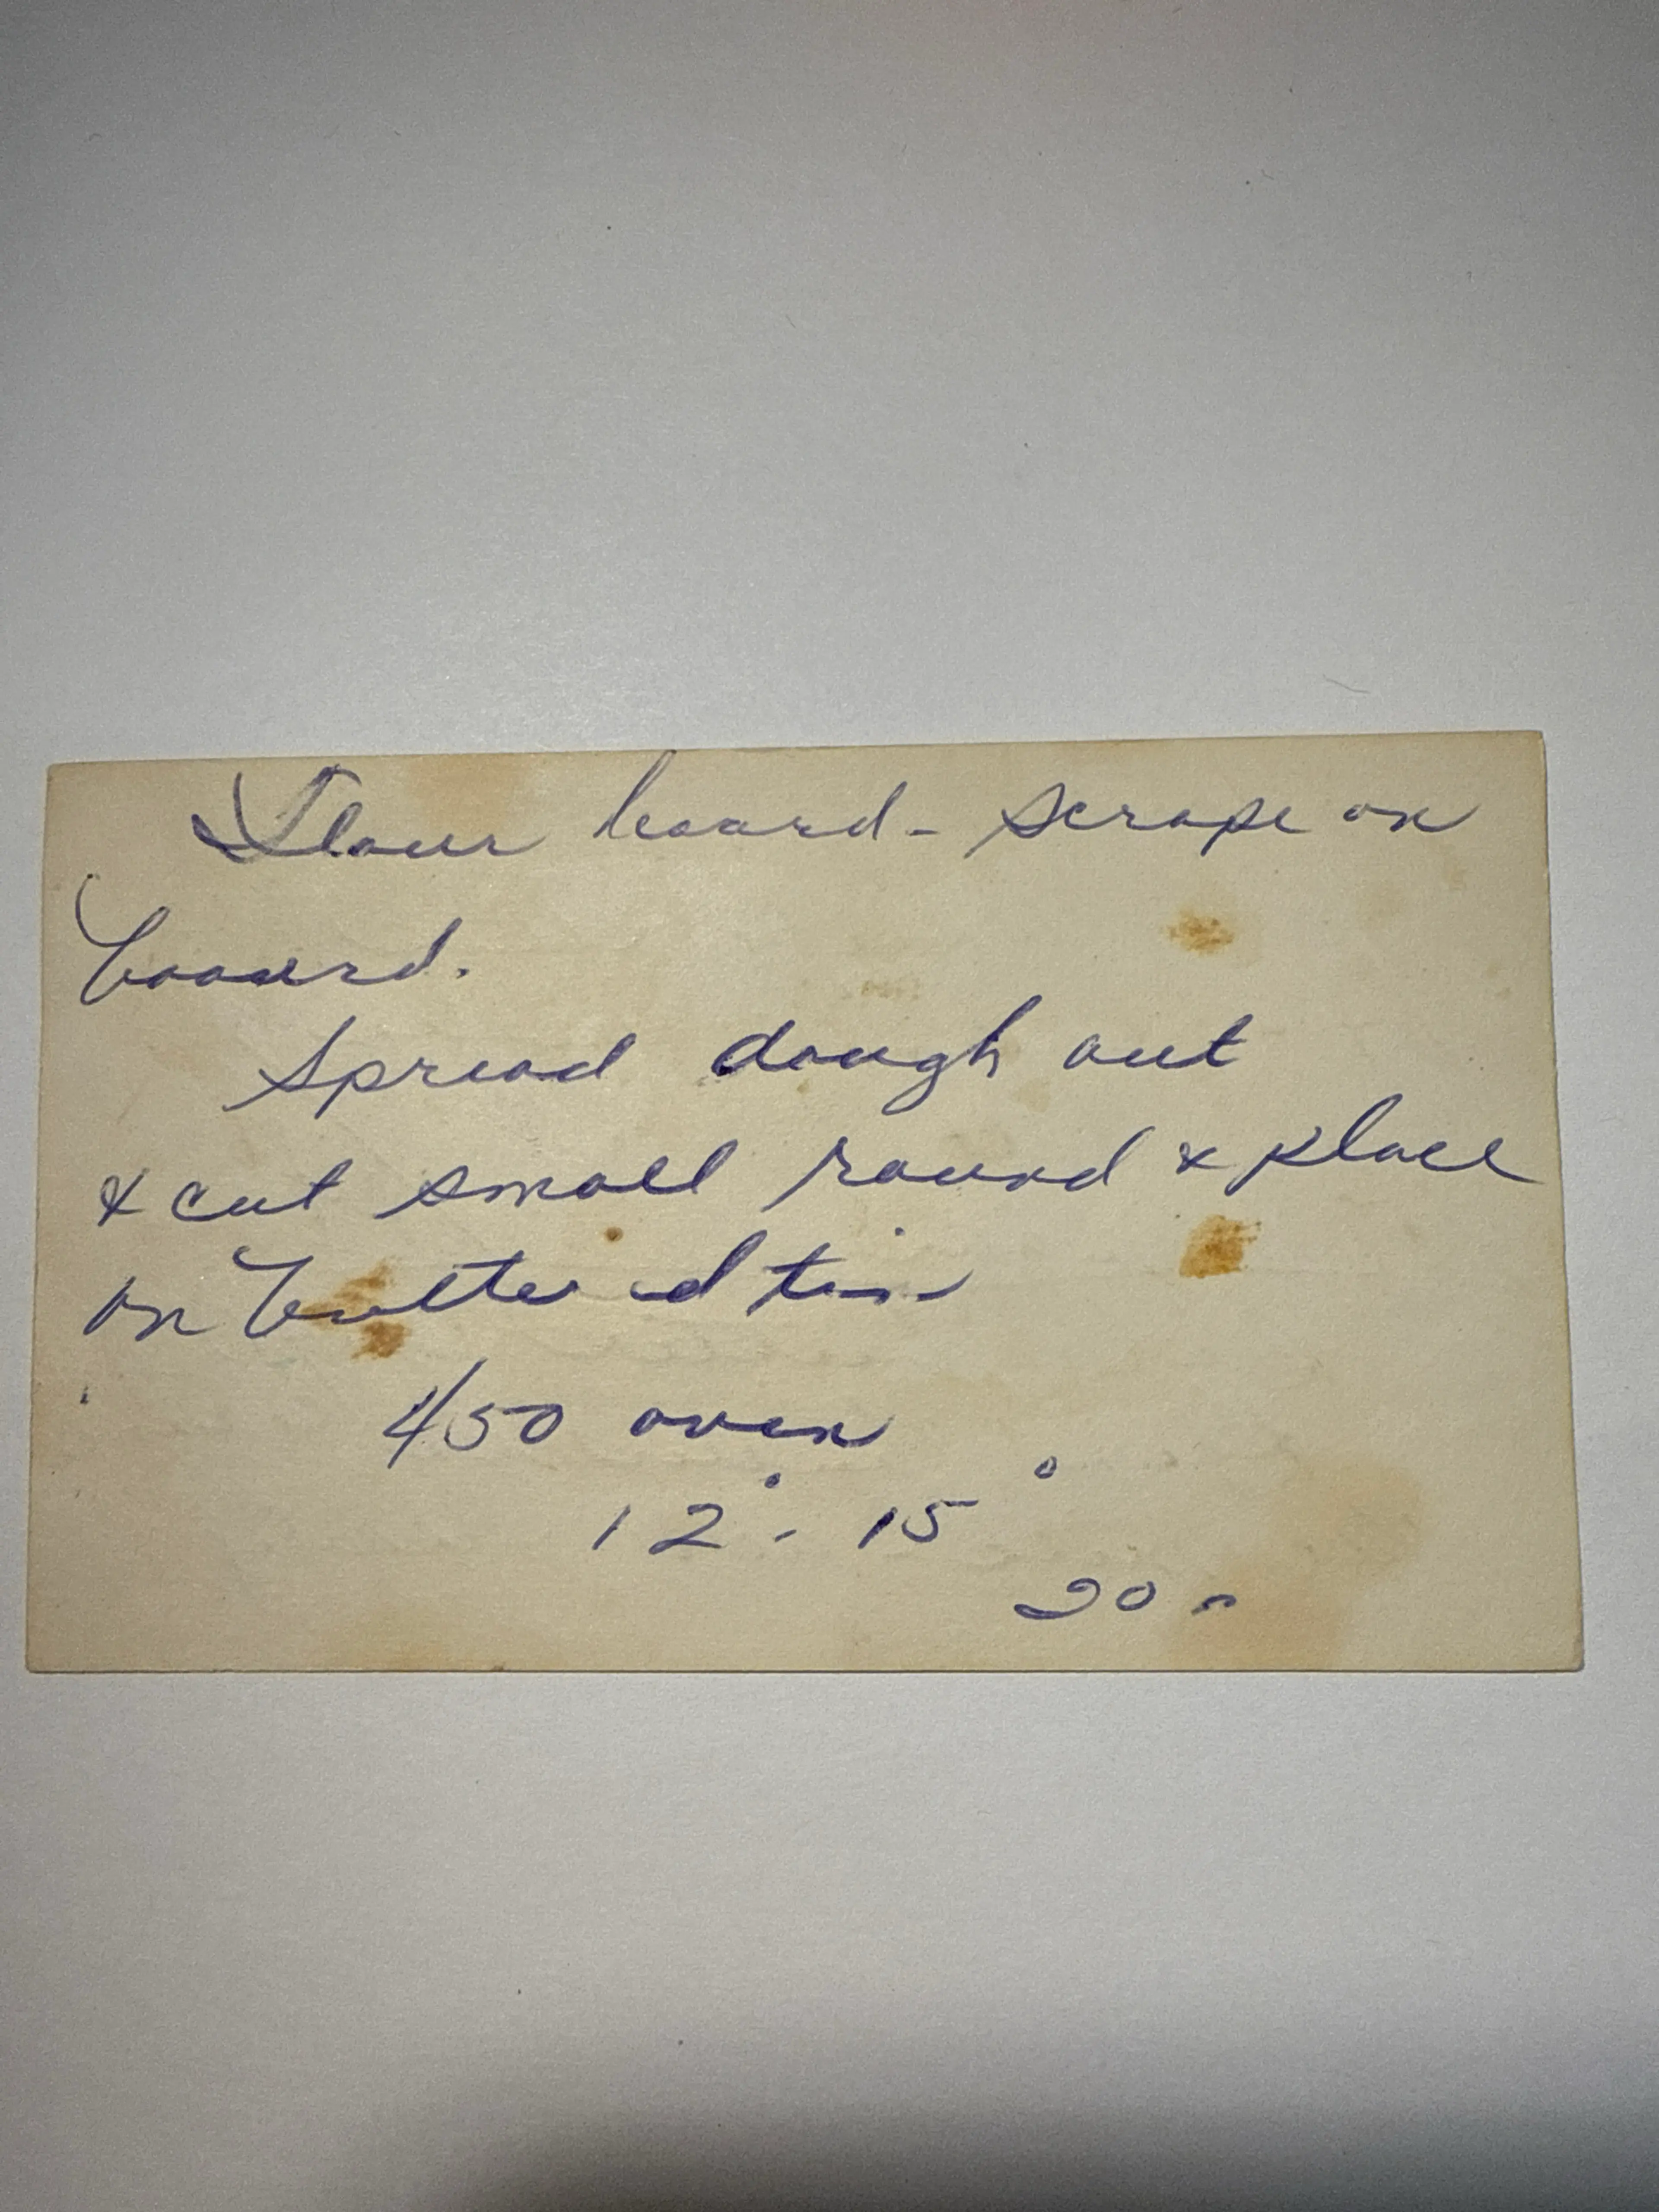 Flour board - scrape on
board.
Spread dough out
& cut small round & place
on buttered tin
450 oven
12° - 15°
20 -